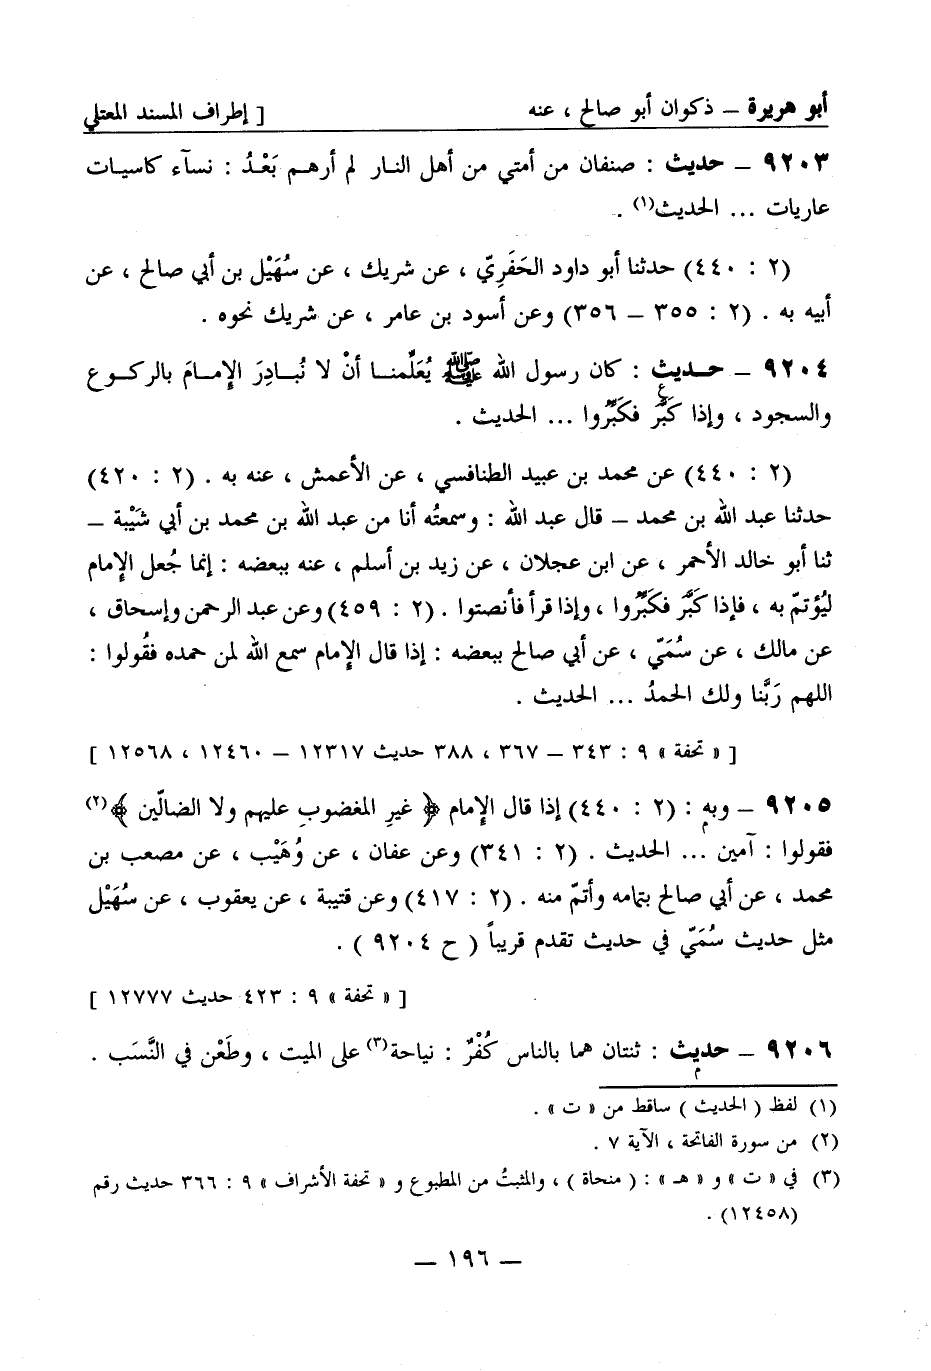 أبو هريرة ــ ذكوان أبو صالح ، عنه [ إطراف المسند المعتلي
٩٢٠٣ ــ حديث : صنفان من أمتي من أهل النار لم أرهم بَعْدُ : نسآء كاسيات
عاريات ... الحديث(١) .
(٢ : ٤٤٠) حدثنا أبو داود الحَفَرِيّ ، عن شريك ، عن سُهَيْل بن أبي صالح ، عن
أبيه به . (٢ : ٣٥٥ ــ ٣٥٦) وعن أسود بن عامر ، عن شريك نحوه .
٩٢٠٤ ــ حديث : كان رسول الله ﷺ يُعَلِّمنا أنْ لا نُبادِرَ الإمامَ بالركوع
والسجود ، وإذا كَبَّر فكَبِّروا ... الحديث .
(٢ : ٤٤٠) عن محمد بن عبيد الطنافسي ، عن الأعمش ، عنه به . (٢ : ٤٢٠)
حدثنا عبد الله بن محمد ــ قال عبد الله : وسمعتُه أنا من عبد الله بن محمد بن أبي شَيْبة ــ
ثنا أبو خالد الأحمر ، عن ابن عجلان ، عن زيد بن أسلم ، عنه ببعضه : إنما جُعل الإمام
ليُؤتمّ به ، فإذا كَبَّر فكَبِّروا ، وإذا قرأ فأنصتوا . (٢ : ٤٥٩) وعن عبد الرحمن وإسحاق ،
عن مالك ، عن سُمَيّ ، عن أبي صالح ببعضه : إذا قال الإمام سمع الله لمن حمده فقُولوا :
اللهم رَبَّنا ولك الحمدُ ... الحديث .
[ « تحفة » ٩ : ٣٤٣ ــ ٣٦٧ ، ٣٨٨ حديث ١٢٣١٧ ــ ١٢٤٦٠ ، ١٢٥٦٨ ]
٩٢٠٥ ــ وبه : (٢ : ٤٤٠) إذا قال الإمام ﴿ غيرِ المغضوبِ عليهم ولا الضالّين ﴾(٢)
فقولوا : آمين ... الحديث . (٢ : ٣٤١) وعن عفان ، عن وُهَيْب ، عن مصعب بن
محمد ، عن أبي صالح بتمامه وأتمّ منه . (٢ : ٤١٧) وعن قتيبة ، عن يعقوب ، عن سُهَيْل
مثل حديث سُمَيّ في حديث تقدم قريباً ( ح ٩٢٠٤ ) .
[ « تحفة » ٩ : ٤٢٣ حديث ١٢٧٧٧ ]
٩٢٠٦ ــ حديث : ثنتان هما بالناس كُفْرٌ : نياحة(٣) على الميت ، وطَعْن في النَّسَب .
(١) لفظ ( الحديث ) ساقط من « ت » .
(٢) من سورة الفاتحة ، الآية ٧ .
(٣) في « ت » و « هـ » : ( منحاة ) ، والمثبتُ من المطبوع و « تحفة الأشراف » ٩ : ٣٦٦ حديث رقم
(١٢٤٥٨) .
ــ ١٩٦ ــ